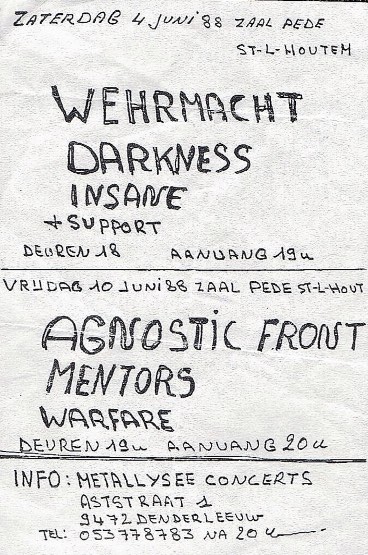 ZATERDAG 4 JUNI 88 ZAAL PEDE
ST-L-HOUTEM
WEHRMACHT
DARKNESS
INSANE
+ SUPPORT
DEUREN 18 AANVANG 19u
VRIJDAG 10 JUNI 88 ZAAL PEDE ST-L-HOUT
AGNOSTIC FRONT
MENTORS
WARFARE
DEUREN 19u AANVANG 20u
INFO: METALLYSEE CONCERTS
ASTSTRAAT 1
9472 DENDERLEEUW
TEL: 053778783 NA 20u